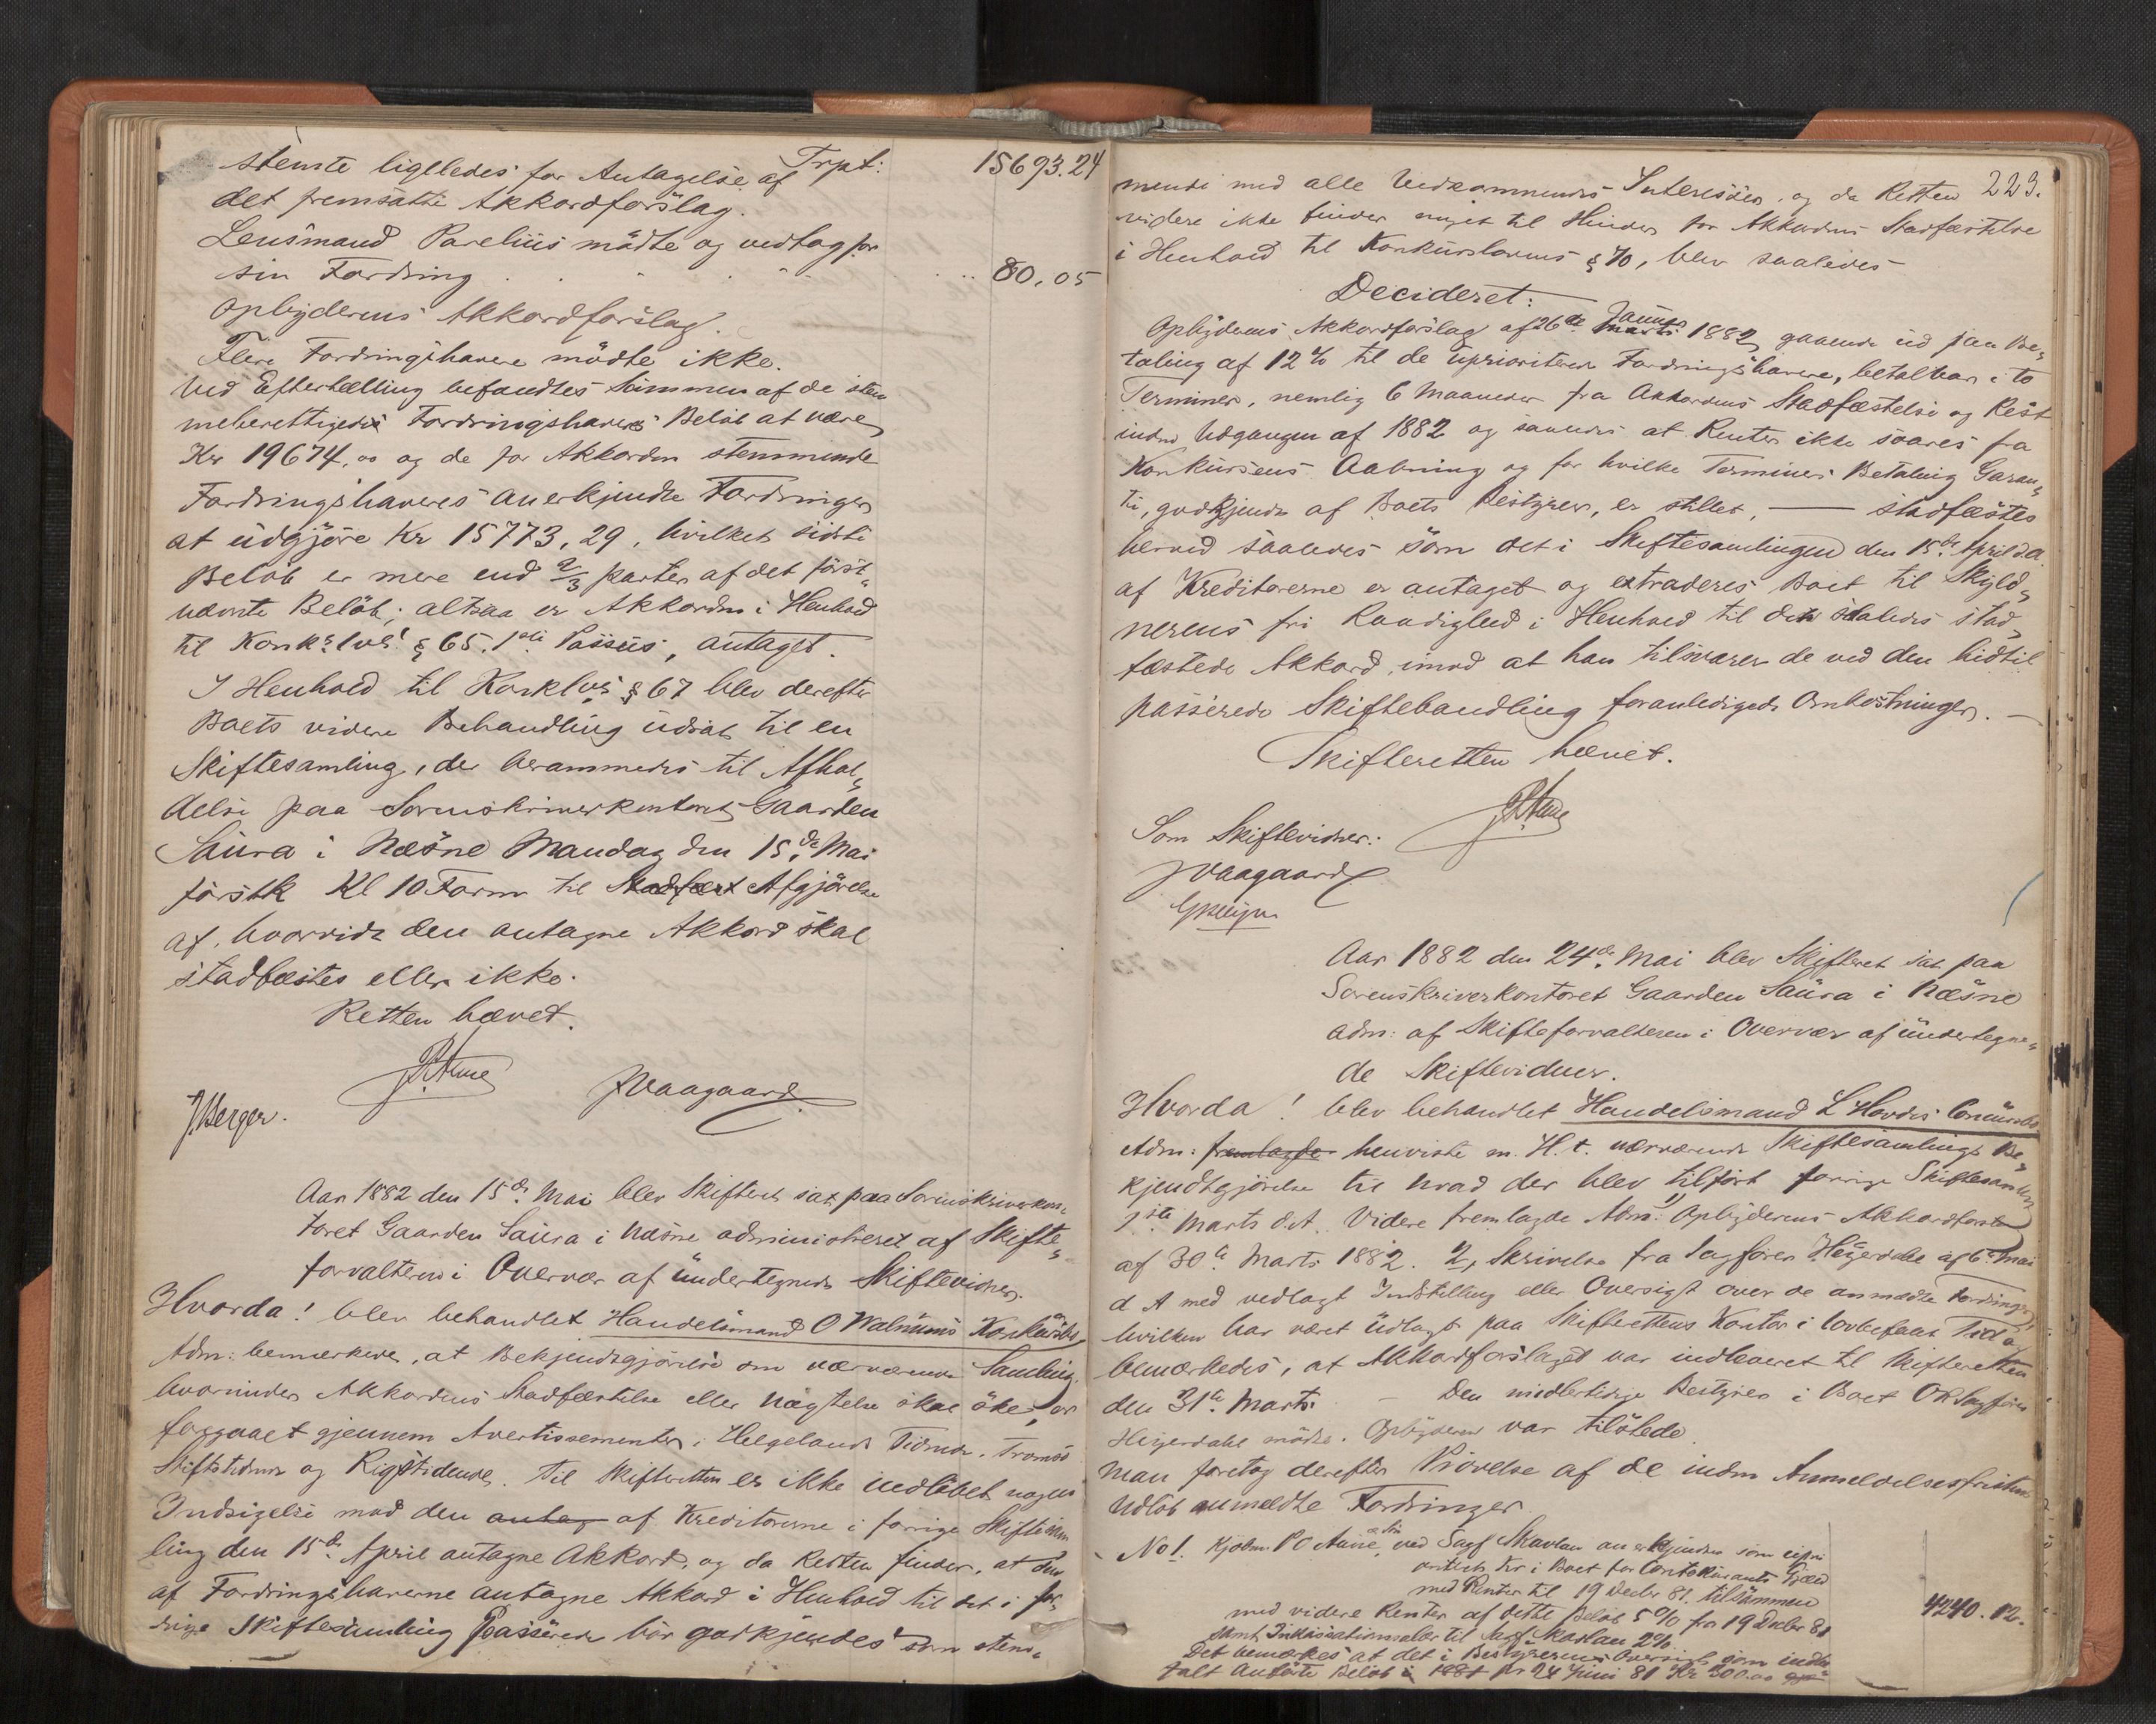 Trpt: 15693.24
stemte ligeledes for Antagelse af
det fremsatte Akkordforslag.
Lensmand Parelius mödte og vedtog for
sin Fordring . . . . . 80.05
Opbyderens Akkordforslag.
Flere Fordringshavere mödte ikke.
Ved Eftertælling befandtes Summen af de stem
meberettigede Fordringshaveres Belöb at være
Kr 19674,00 og de for Akkorden stemmende
Fordringshaveres anerkjendte Fordringer
at udgjöre Kr 15773,29, hvilket sidste
Belöb er mere end 2/3 parter af det först-
nævnte Belöb; altsaa er Akkorden i Henhold
til Konk.s lovs § 65. 1ste Passus, antaget.
I Henhold til Konklovs § 67 blev derefter
Boets videre Behandling udsat til en
Skiftesamling, der berammedes til Afhol-
delse paa Sorenskriverkontoret Gaarden
Saura i Næsne Mandag den 15de Mai
förstk Kl 10 Form til Stadfæst Afgjörelse
af, hvorvidt den antagne Akkord skal
stadfæstes eller ikke.
Retten hævet.
JVaagaard
J.Berger.
Aar 1882 den 15de Mai blev Skifteret sat paa Sorenskriverkon-
toret Gaarden Saura i Næsne administreret af Skifte-
forvalteren i Overvær af undertegnede Skiftevidner.
Hvorda! blev behandlet Handelsmand O Walnums Konkursbo
Adm: bemærkede, at Bekjendtgjörelse om nærværende Samling,
hvorunder Akkordens Stadfæstelse eller Nægtelse skal ske, er
foregaaet gjennem Avertissementer i Helgelands Tidende, Tromsö
Stiftstidende og Rigstidende. Til Skifteretten er ikke indlöbet nogen
Indsigelse mod den antag af Kreditorerne i forrige Skiftesam
ling den 15de April antagne Akkord, og da Retten finder, at den
af Fordringshaverne antagne Akkord i Henhold til det i for-
rige Skiftesamling Passerede bör godkjendes som stem-
223.
mende med alle Vedkommendes Interesser, og da Retten
videre ikke finder noget til Hinder for Akkordens Stadfæstelse
i Henhold til Konkurslovens § 70, blev saaledes
Decideret:
Opbyderens Akkordforslag af 26de Januar Marts 1882, gaaende ud paa Be-
taling af 12 % til de uprioriterede Fordringshavere, betalbar i to
Terminer, nemlig 6 Maaneder fra Akkordens Stadfæstelse og Rest
inden Udgangen af 1882 og saaledes at Renter ikke svares fra
Konkursens Aabning og for hvilke Terminers Betaling Garan-
ti, godkjendt af Boets Bestyrer, er stillet, — stadfæstes
herved saaledes som det i Skiftesamlingen den 15de April d.A.
af Kreditorerne er antaget og extraderes Boet til Skyld-
nerens fri Raadighed i Henhold til den saaledes stad-
fæstede Akkord, imod at han tilsvarer de ved den hidtil
passerede Skiftebehandling foranledigede Omkostninger. —
Skifteretten hævet.
Som Skiftevidner:
JVaagaard
Aar 1882 den 24de Mai blev Skifteret sat paa
Sorenskriverkontoret Gaarden Saura i Næsne
adm: af Skifteforvalteren i Overvær af undertegne-
de Skiftevidner.
Hvorda! blev behandlet Handelsmand L Hovdes Concursbo
Adm: fremlagde henviste m. H. t. nærværende Skiftesamlings Be-
kjendtgjörelse til hvad der blev tilfört forrige Skiftesamling
1ste Marts d.A. Videre fremlagde Adm: 1) Opbyderens Akkordforslag
af 30te Marts 1882. 2, Skrivelse fra Sagförer Heyerdahl af 6te Mai
d A med vedlagt Indstilling eller Oversigt over de anmeldte Fordringer,
hvilken har været udlagt paa Skifterettens Kontor i lovbefalet Tid og
bemærkedes, at Akkordforslaget var indleveret til Skifteretten
den 31te Marts. — Den midlertidige Bestyrer i Boet OR Sagförer
Heyerdahl mödte. Opbyderen var tilstede.
Man foretog derefter Prövelse af de inden Anmeldelsesfristens
Udlöb anmeldte Fordringer.
No 1. Kjöbm. P O Aune ved Sagf Skavlan anerkjendes som upri
oriteret Kr i Boet for Contokurants Gjæld
med Renter til 19 Decbr 81. tilsammen 4240.12.
med videre Renter af dette Belöb 5 % fra 19 Decbr 81
samt Inkassationssalær til Sagf Skavlan 2%.
Det bemærkes at det i Bestyrerens Oversigt som indbe
talt anförte Belöb i 1881 pr 24 Juni 81 Kr 300.00